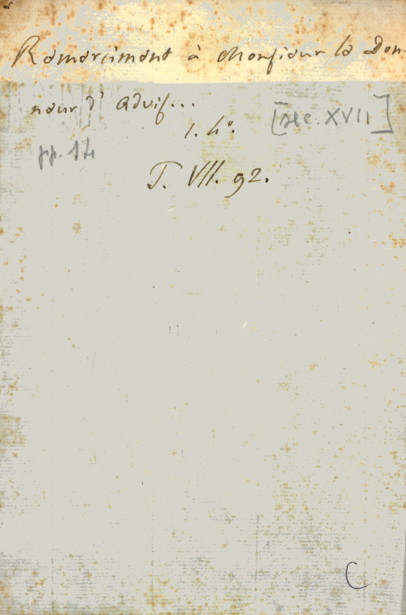 Remerciment à Monsieur le Don-
neur d' advis...
1. 4º.
[sec. XVII]
pp. 14
T. VII. 92.
C